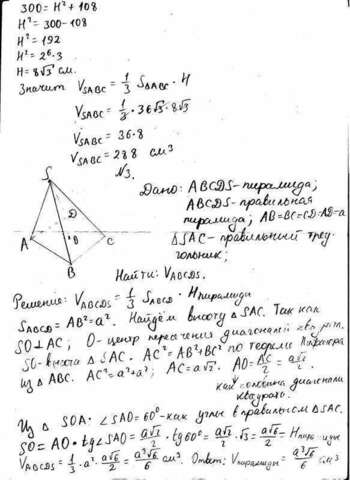 300 = H² + 108
H² = 300-108
H² = 192
H² = 2⁶·3
H = 8√3 см.
Значит V_SABC = 1/3 S_ΔABC · H
V_SABC = 1/3 · 36√3 · 8√3
V_SABC = 36·8
V_SABC = 288 см³
N3.
S
D
A
O
C
B
Дано: ABCDS-пирамида;
ABCDS-правильная
пирамида; AB=BC=CD=AD=a
ΔSAC- правильный треу
гольник;
Найти: V_ABCDS.
Решение: V_ABCDS = 1/3 S_ABCD · H пирамиды
S_ABCD = AB² = a². Найдём высоту ΔSAC. Так как
SO⊥AC; O- центр пересечения диагоналей
SO- высота ΔSAC. AC² = AB²+BC² по теореме Пифагора
из ΔABC. AC² = a²+a²; AC = a√2. AO = AC/2 = a√2/2.
как половина диагонали
квадрата.
Из ΔSOA: ∠SAO = 60° - как углы в правильном ΔSAC.
SO = AO · tg∠SAO = a√2/2 · tg60° = a√2/2 · √3 = a√6/2 - H
V_ABCDS = 1/3 · a² · a√6/2 = a³√6/6 см³. Ответ: V пирамиды = a³√6/6